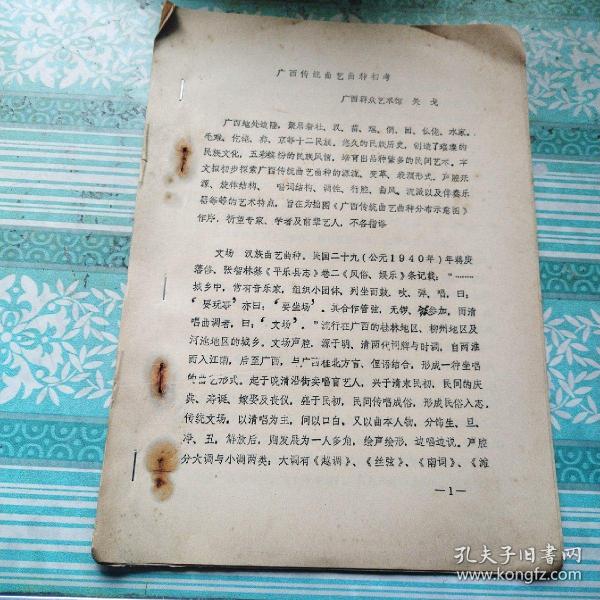 广西传统曲艺曲种初考
广西群众艺术馆 吴戈
广西地处边陲，聚居着壮、汉、苗、瑶、侗、回、仫佬、水家、
毛难、仡佬、彝、京等十二民族。悠久的民族历史，创造了璀璨的
民族文化，五彩缤纷的民族风情，培育出品种繁多的民间艺术。本
文拟初步探索广西传统曲艺曲种的源流、变革、表演形式、声腔来
源、旋律结构、 唱词结构、调性、行腔、曲风、流派以及伴奏乐
器等等的艺术特点，旨在为拙图《广西传统曲艺曲种分布示意图》
作序，祈望专家、学者及前辈艺人，不吝指谬
文场 汉族曲艺曲种。民国二十九（公元1940年）年蒋庚
蕃修、张智林纂《平乐县志》卷二《风俗、娱乐》条记载：“………
城乡中，常有音乐家，组织小团体，列坐而鼓、吹、弹、唱，曰：
‘耍玩耍’亦曰：‘耍坐场’。其合作管弦，无锣、鼓参加，而清
唱曲调者，曰：‘文场’。”流行在广西的桂林地区、柳州地区及
河池地区的城乡。文场声腔，源于明、清两代词牌与时调，自两淮
而入江南，后至广西，与广西桂北方言、俚语结合，形成一种坐唱
的曲艺形式。起于晚清沿街卖唱盲艺人，兴于清末民初，民间的庆
典、寿诞、嫁娶及丧仪，雍于民初，民间传唱成俗，形成民俗入志。
传统文场，以清唱为主，间以口白，又以曲本人物，分饰生、旦、
净、丑，解放后，则发展为一人多角，绘声绘形，边唱边说，声腔
分大调与小调两类：大调有《越调》、《丝弦》、《南词》、《滩
—1—
孔夫子旧书网
www.kongfz.com